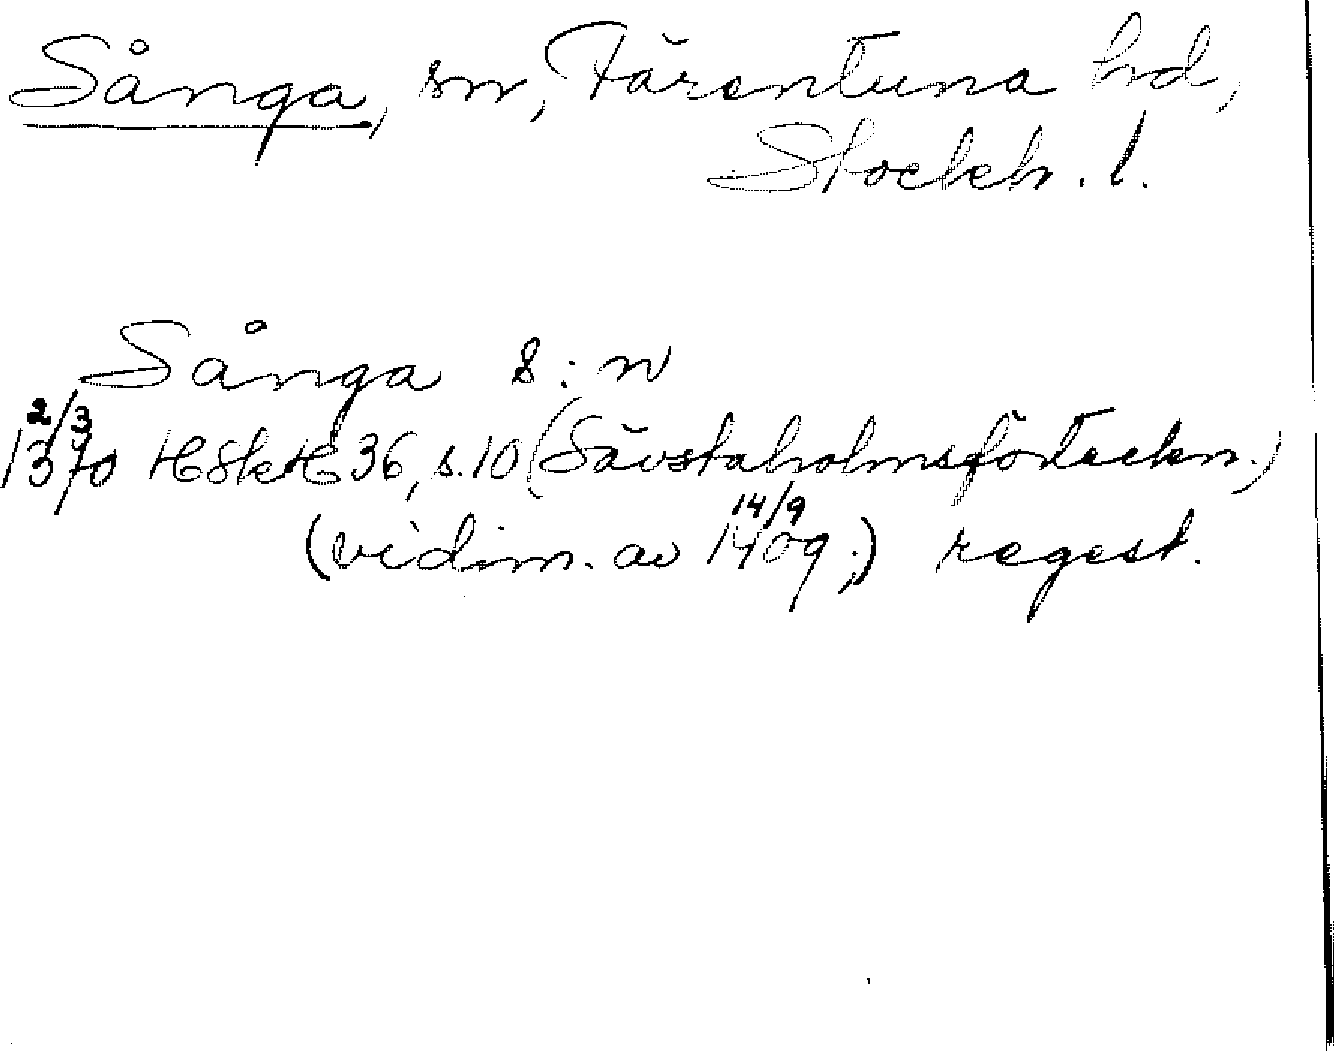 Sånga, sn, Färentuna hd,
Stockh. l.
Sånga s:n
2/3
1370 HSkH 36, s. 10 (Sävstaholmsförteckn.)
14/9
(vidim. av 1409;) regest.